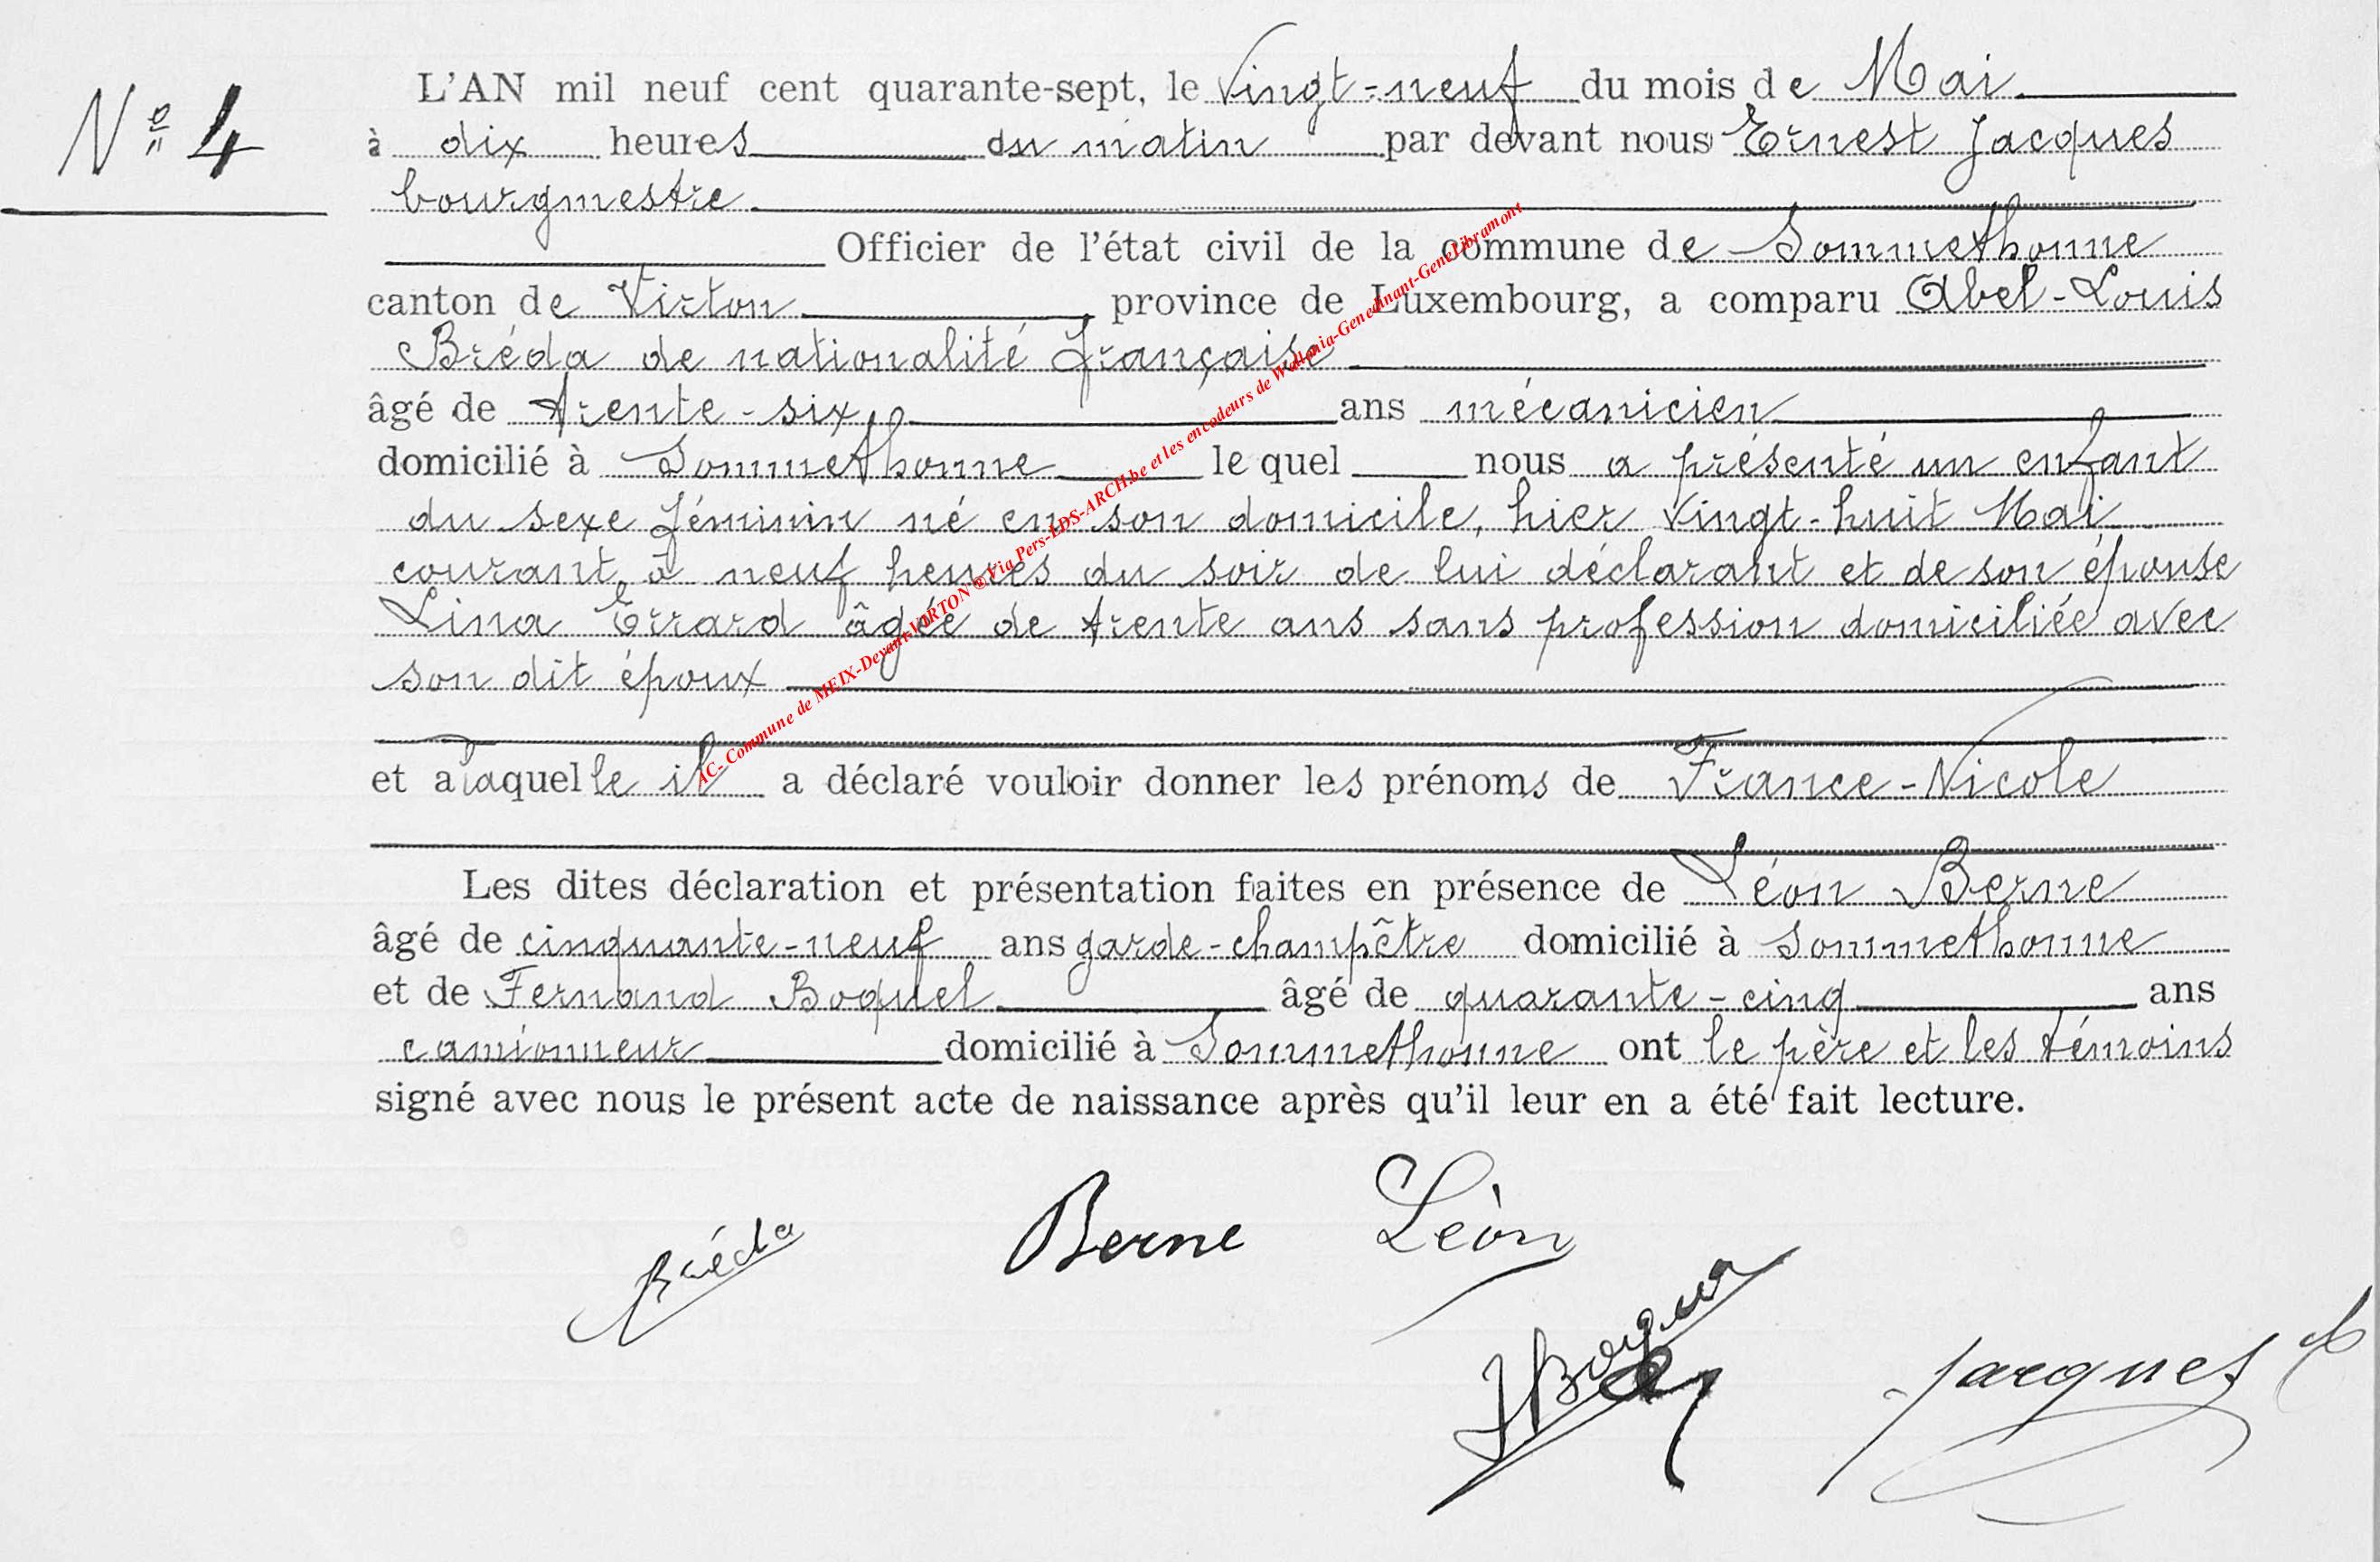 Nº 4
L'AN mil neuf cent quarante-sept, le Vingt-neuf du mois de Mai
à dix heures du matin par devant nous Ernest Jacques
bourgmestre
Officier de l'état civil de la commune de Sommethonne
canton de Virton, province de Luxembourg, a comparu Abel-Louis
Bréda de nationalité française
âgé de trente-six ans mécanicien
domicilié à Sommethonne lequel nous a présenté un enfant
du sexe féminin né en son domicile, hier Vingt-huit Mai
courant, à neuf heures du soir de lui déclarant et de son épouse
Lina Errard âgée de trente ans sans profession domiciliée avec
son dit époux
et à laquelle il a déclaré vouloir donner les prénoms de France-Nicole
Les dites déclaration et présentation faites en présence de Léon Berne
âgé de cinquante-neuf ans garde-champêtre domicilié à Sommethonne
et de Fernand Boquel âgé de quarante-cinq ans
camionneur domicilié à Sommethonne ont le père et les témoins
signé avec nous le présent acte de naissance après qu'il leur en a été fait lecture.
Bréda Berne Léon
Jacques
AC- Commune de MEIX-Devant-VIRTON ® Via Pers-LDS-ARCH.be et les encodeurs de Wallonia-Genedinant-GeneLibramont